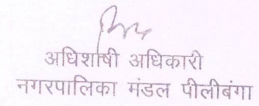 अधिशाषी अधिकारी
नगरपालिका मंडल पीलीबंगा